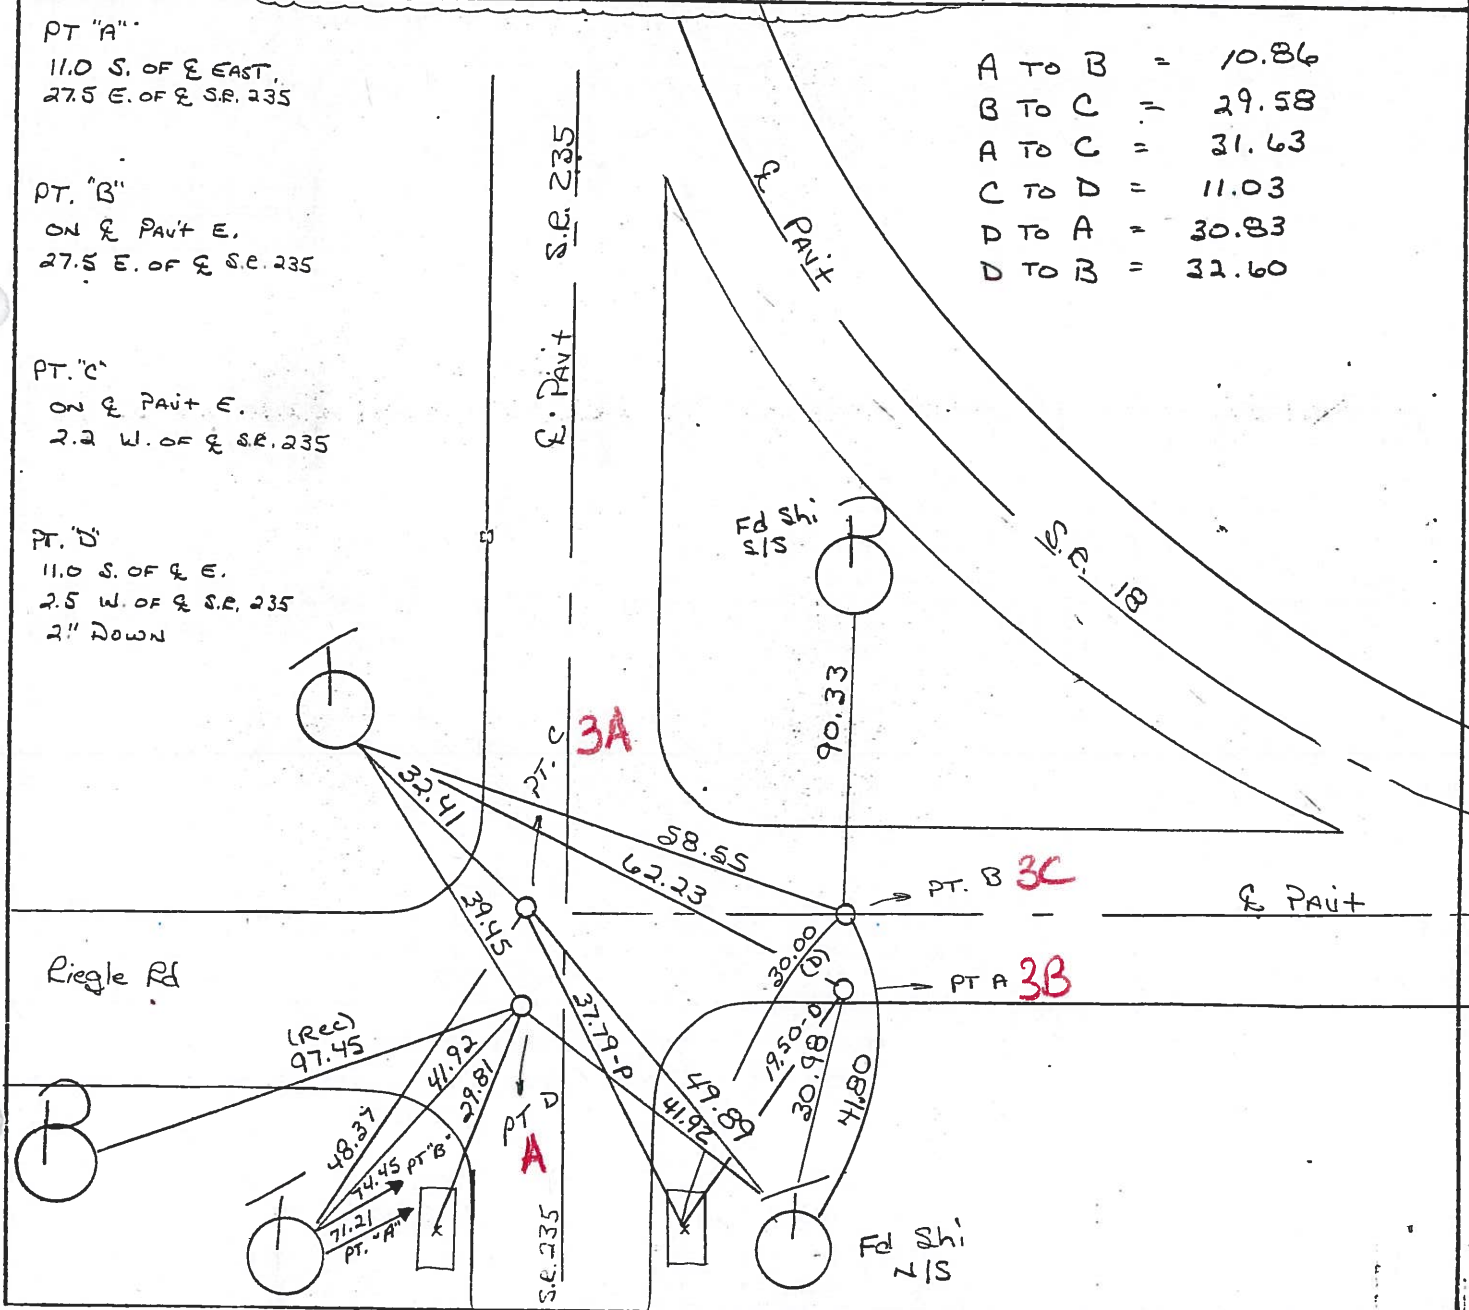 PT "A"
11.0 S. OF ℄ EAST.
27.5 E. OF ℄ S.R. 235
PT. "B"
ON ℄ PAV't E.
27.5 E. OF ℄ S.R. 235
PT. "C"
ON ℄ PAV't E.
2.2 W. OF ℄ S.R. 235
PT. "D"
11.0 S. OF ℄ E.
2.5 W. OF ℄ S.R. 235
2" DOWN
A TO B = 10.86
B TO C = 29.58
A TO C = 31.63
C TO D = 11.03
D TO A = 30.83
D TO B = 32.60
S.R. 235
℄ PAV't
℄ PAV't
S.R. 18
Fd Shi
S/S
90.33
PT. C 3A
32.41
58.55
62.23
39.45
PT. B 3C
℄ PAV't
30.00
(P)
PT A 3B
Riegle Rd
(Rec)
97.45
41.92
29.81
48.37
74.45 PT "B"
71.21
PT. "A"
PT D
A
37.79-P
49.89
41.92
19.50-0
30.98
41.80
S.R. 235
Fd Shi
N/S